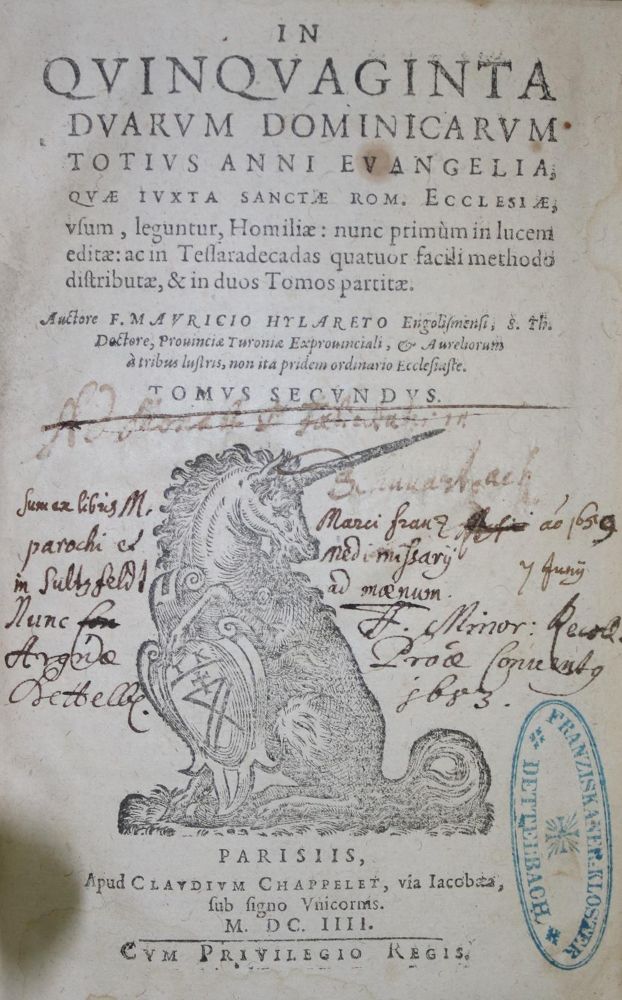 IN
QVINQVAGINTA
DVARVM DOMINICARVM
TOTIVS ANNI EVANGELIA,
QVÆ IVXTA SANCTÆ ROM. ECCLESIÆ,
vsum, leguntur, Homiliæ: nunc primùm in lucem
editæ: ac in Tessaradecadas quatuor facili methodo
distributæ, & in duos Tomos partitæ.
Auctore F. MAVRICIO HYLARETO Engolismensi, S. Th.
Doctore, Prouinciæ Turoniæ Exprouinciali, & Aureliorum
à tribus lustris, non ita pridem ordinario Ecclesiaste.
TOMVS SECVNDVS.
Ad
Sum ex libris M. Marci franz aõ 1659
parochi et missarij 7 Junij
in Sultzfeldt ad mænum.
Nunc ff. Minor: Recoll.
Argniæ Proæ Conventq
Dettelb. 1683.
FRANZISKANER-KLOSTER
DETTELBACH
PARISIIS,
Apud CLAVDIVM CHAPPELET, via Iacobæa,
sub signo Vnicornis.
M. DC IIII.
CVM PRIVILEGIO REGIS.